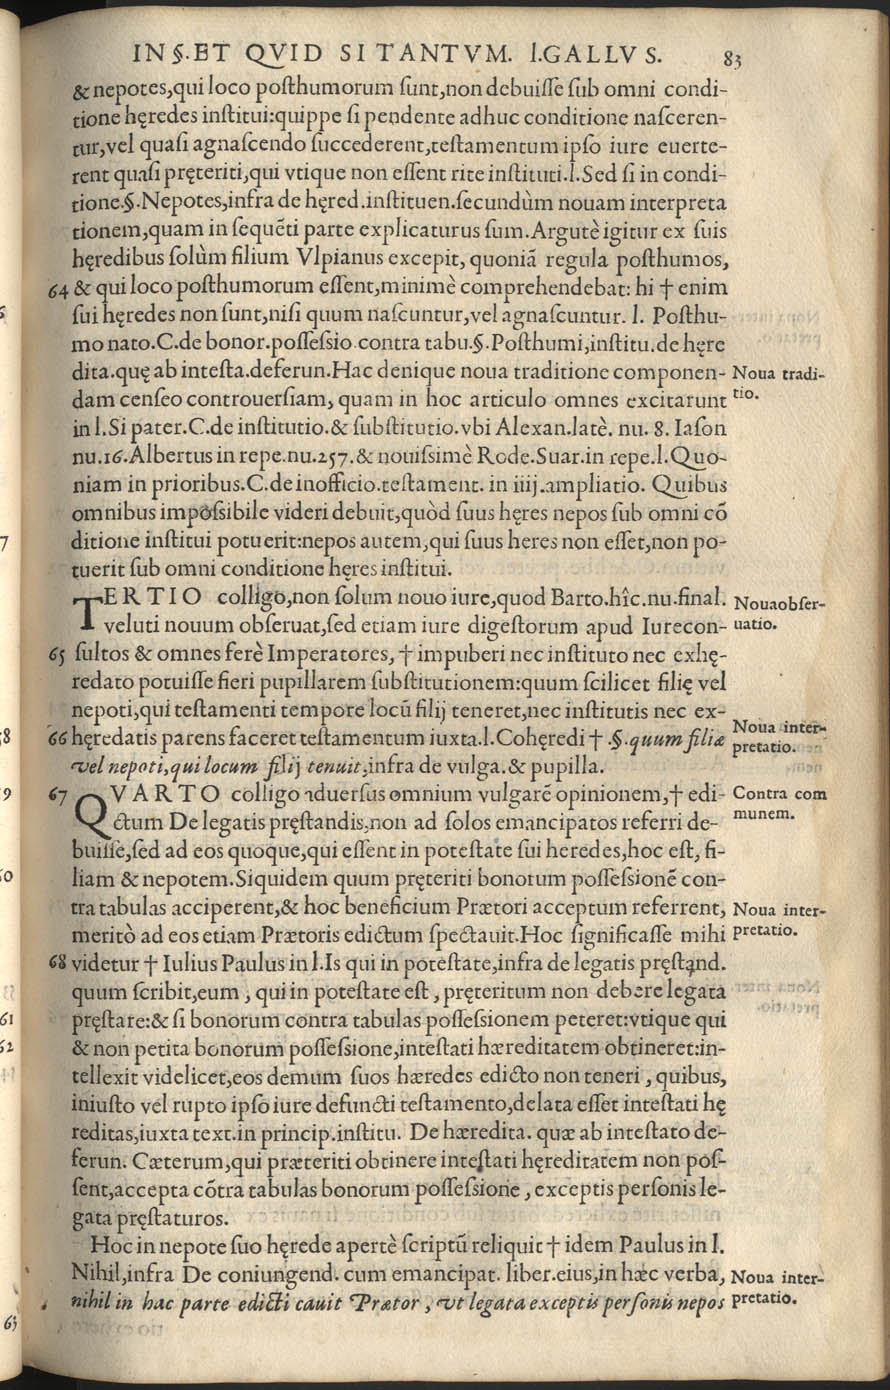 IN §. ET QVID SI TANTVM. l. GALLVS. 83
& nepotes,qui loco posthumorum sunt,non debuisse sub omni condi-
tione hęredes institui:quippe si pendente adhuc conditione nasceren-
tur,vel quasi agnascendo succederent,testamentum ipso iure euerte-
rent quasi pręteriti,qui vtique non essent rite instituti.l.Sed si in condi-
tione.§.Nepotes,infra de hęred.instituen.secundùm nouam interpreta
tionem,quam in sequēti parte explicaturus sum.Argutè igitur ex suis
hęredibus solùm filium Vlpianus excepit, quoniã regula posthumos,
64 & qui loco posthumorum essent,minimè comprehendebat: hi † enim
sui hęredes non sunt,nisi quum nascuntur,vel agnascuntur. l. Posthu-
mo nato.C.de bonor.possessio.contra tabu.§.Posthumi,institu.de hęre
dita.quę ab intesta.deferun.Hac denique noua traditione componen- Noua tradi-
dam censeo controuersiam, quam in hoc articulo omnes excitarunt tio.
in l.Si pater.C.de institutio.& substitutio.vbi Alexan.latè. nu. 8. Iason
nu.16.Albertus in repe.nu.257.& nouissimè Rode.Suar.in repe.l.Quo-
niam in prioribus.C.de inofficio.testament. in iiij.ampliatio. Quibus
omnibus impossibile videri debuit,quòd suus hęres nepos sub omni cō
ditione institui potuerit:nepos autem,qui suus heres non esset,non po-
tuerit sub omni conditione hęres institui.
TERTIO colligo,non solum nouo iure,quod Barto.hîc.nu.final. Nouaobser-
veluti nouum obseruat,sed etiam iure digestorum apud Iurecon- uatio.
65 sultos & omnes ferè Imperatores, † impuberi nec instituto nec exhę-
redato potuisse fieri pupillarem substitutionem:quum scilicet filię vel
nepoti,qui testamenti tempore locū filij teneret,nec institutis nec ex-
66 hęredatis parens faceret testamentum iuxta.l.Cohęredi † .§.quum filiæ Noua inter-
vel nepoti,qui locum filij tenuit,infra de vulga.& pupilla. pretatio.
67 QVARTO colligo aduersus omnium vulgarē opinionem,† edi- Contra com
ctum De legatis pręstandis,non ad solos emancipatos referri de- munem.
buisse,sed ad eos quoque,qui essent in potestate sui heredes,hoc est, fi-
liam & nepotem.Siquidem quum pręteriti bonorum possessionē con-
tra tabulas acciperent,& hoc beneficium Prætori acceptum referrent, Noua inter-
meritò ad eos etiam Prætoris edictum spectauit.Hoc significasse mihi pretatio.
68 videtur † Iulius Paulus in l.Is qui in potestate,infra de legatis pręstand.
quum scribit,eum , qui in potestate est , pręteritum non debere legata
pręstare:& si bonorum contra tabulas possessionem peteret:vtique qui
& non petita bonorum possessione,intestati hæreditatem obtineret:in-
tellexit videlicet,eos demum suos hæredes edicto non teneri , quibus,
iniusto vel rupto ipso iure defuncti testamento,delata esset intestati hę
reditas,iuxta text.in princip.institu. De hæredita. quæ ab intestato de-
ferun. Cæterum,qui præteriti obtinere intestati hęreditatem non pos-
sent,accepta cōtra tabulas bonorum possessione , exceptis personis le-
gata pręstaturos.
Hoc in nepote suo hęrede apertè scriptū reliquit † idem Paulus in l.
Nihil,infra De coniungend. cum emancipat. liber.eius,in hæc verba, Noua inter-
nihil in hac parte edicti cauit Prætor , vt legata exceptis personis nepos pretatio.